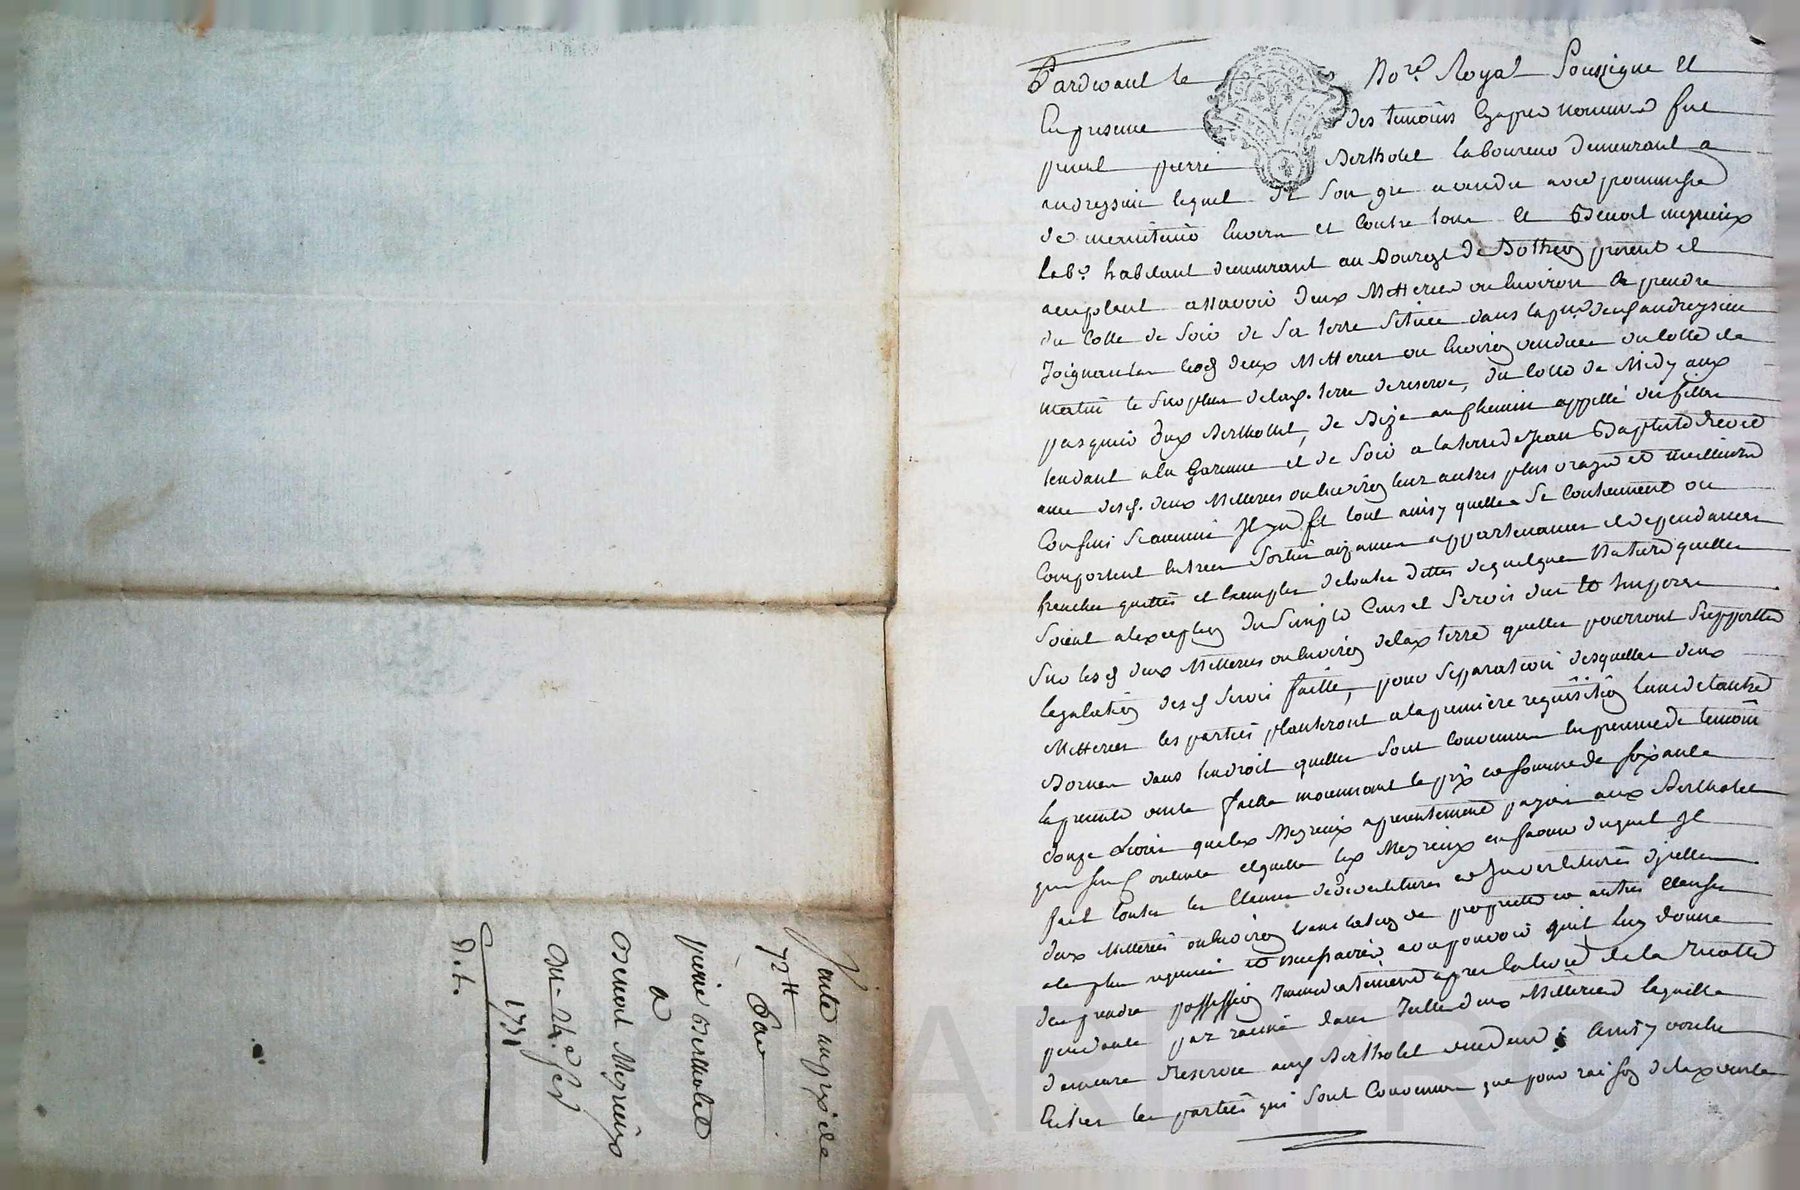 Pardevant le No.re Royal Soussigne Et
En presence des temoins Cyapres nommes fut
present pierre Bertholet laboureur demeurant a
andressin lequel de Son gre a vendu avec promesse
de maintenir Envers et Contre tous a Benoit meyrieux
lab.r habitant demeurant au Bourg de present et
acceptant assavoir deux Metterees ou Environ a prendre
du Cotté de Soir de Sa terre Située dans la
Joignantes lesd deux Metterees ou Environ vendues du Cotté de
matin le Surplus de lad. terre de reserve, du Cotté de Midy aux
pasquier dud Bertholet, de Bize au Chemin appellé des fillies
tendant a la Garenne et de Soir a la terre de Jean Baptiste
avec desd. deux Metterees ou Environ leur autres plus vrayes et meilleures
Confins Sy aucuns Il y en a Et tout ainsy quelles Se Contiennent ou
Comportent Entrees Sorties aizances appartenances et dependances
franches quittes et Exemptes de toutes dettes de quelques Nature quelles
Soient a l'exception du Simple Cens et Servis dus et Imposes
Sur lesd deux Metterees ou Environ de lad terre quelles pourront Supporter
legalation desd Servis faitte, pour Separation desquelles deux
Metterees les parties planteront a la premiere requisition l'un de l'autre
Bornes dans l'endroit quelles Sont Convenues En presence de temoins
la presente vente faitte moiennant le prix et Somme de Soixante
douze Livres que led Meyrieux presentement payées aud Bertholet
fait toutes les Clauses de devestitures et Investitures d'jcelles
deux Metterees ou Environ translation de proprieté et autres Clauses
a lu plus requises et necessaires avec pouvoir quil luy donne
d'en prendre possession Immediatement apres la levée de la recolte
pendante par racine dans Jcelle deux Metterees laquelle
demeure Reservée aud Bertholet vendeur ainsy
Entre les parties qui Sont Convenues que pour raison de lad vente
Vente au prix de
72tt Par
pierre Bertholet
a
Benoit Meyrieux
Du 24.e
1731